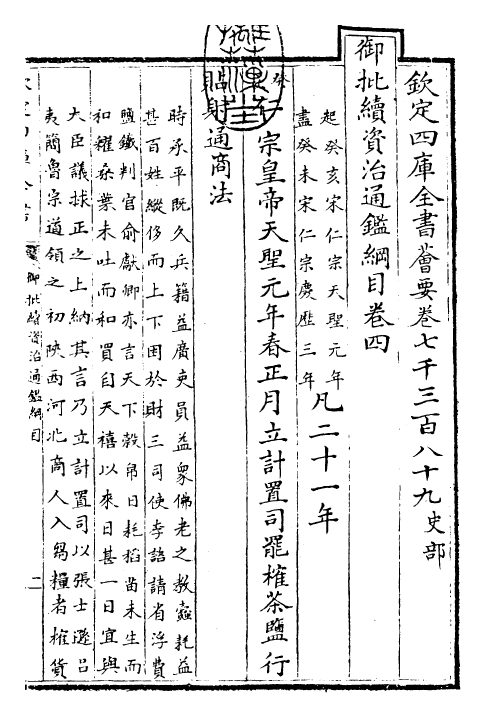 欽定四庫全書薈要卷七千三百八十九史部
御批續資治通鑑綱目卷四
起癸亥宋仁宗天聖元年
盡癸未宋仁宗慶歷三年
凡二十一年
癸亥仁宗皇帝天聖元年春正月立計置司罷榷茶鹽行
貼射通商法
時承平既久兵籍益廣吏員益衆佛老之教蠹耗益
甚百姓縱侈而上下困於財三司使李諮請省浮費
鹽鐵判官俞獻卿亦言天下穀帛日耗稻苗未生而
和糴桑葉未吐而和買自天禧以來日甚一日宜與
大臣議捄正之上納其言乃立計置司以張士遜呂
夷簡魯宗道領之初陝西河北商人入芻糧者榷貨
御批續資治通鑑綱目
二